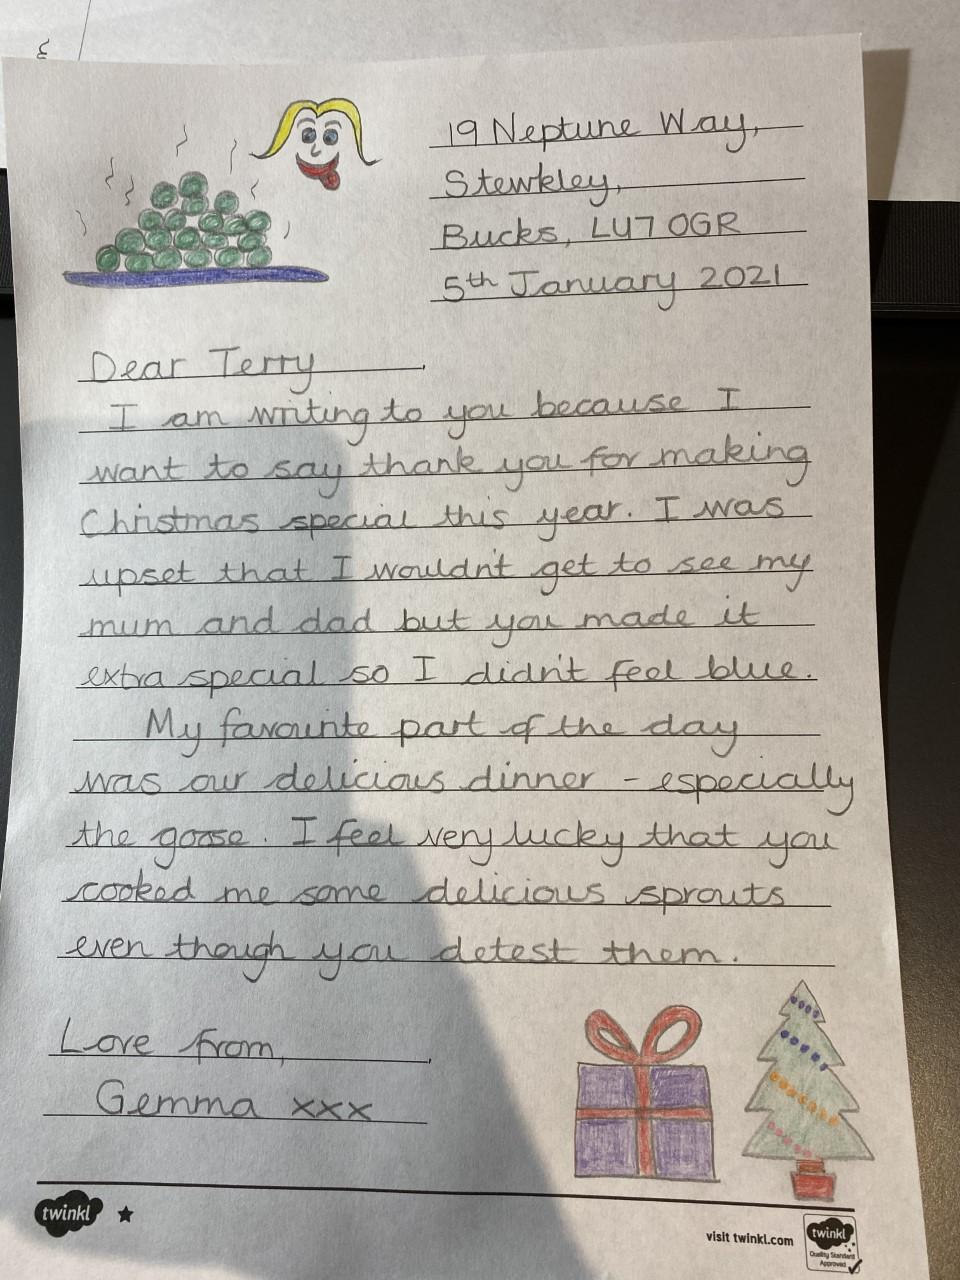 19 Neptune Way,
Stewkley,
Bucks, LU7 0GR
5th January 2021
Dear Terry,
I am writing to you because I
want to say thank you for making
Christmas special this year. I was
upset that I wouldn't get to see my
mum and dad but you made it
extra special so I didn't feel blue.
My favourite part of the day
was our delicious dinner - especially
the goose. I feel very lucky that you
cooked me some delicious sprouts
even though you detest them.
Love from,
Gemma xxx
twinkl
visit twinkl.com
twinkl
Quality Standard
Approved